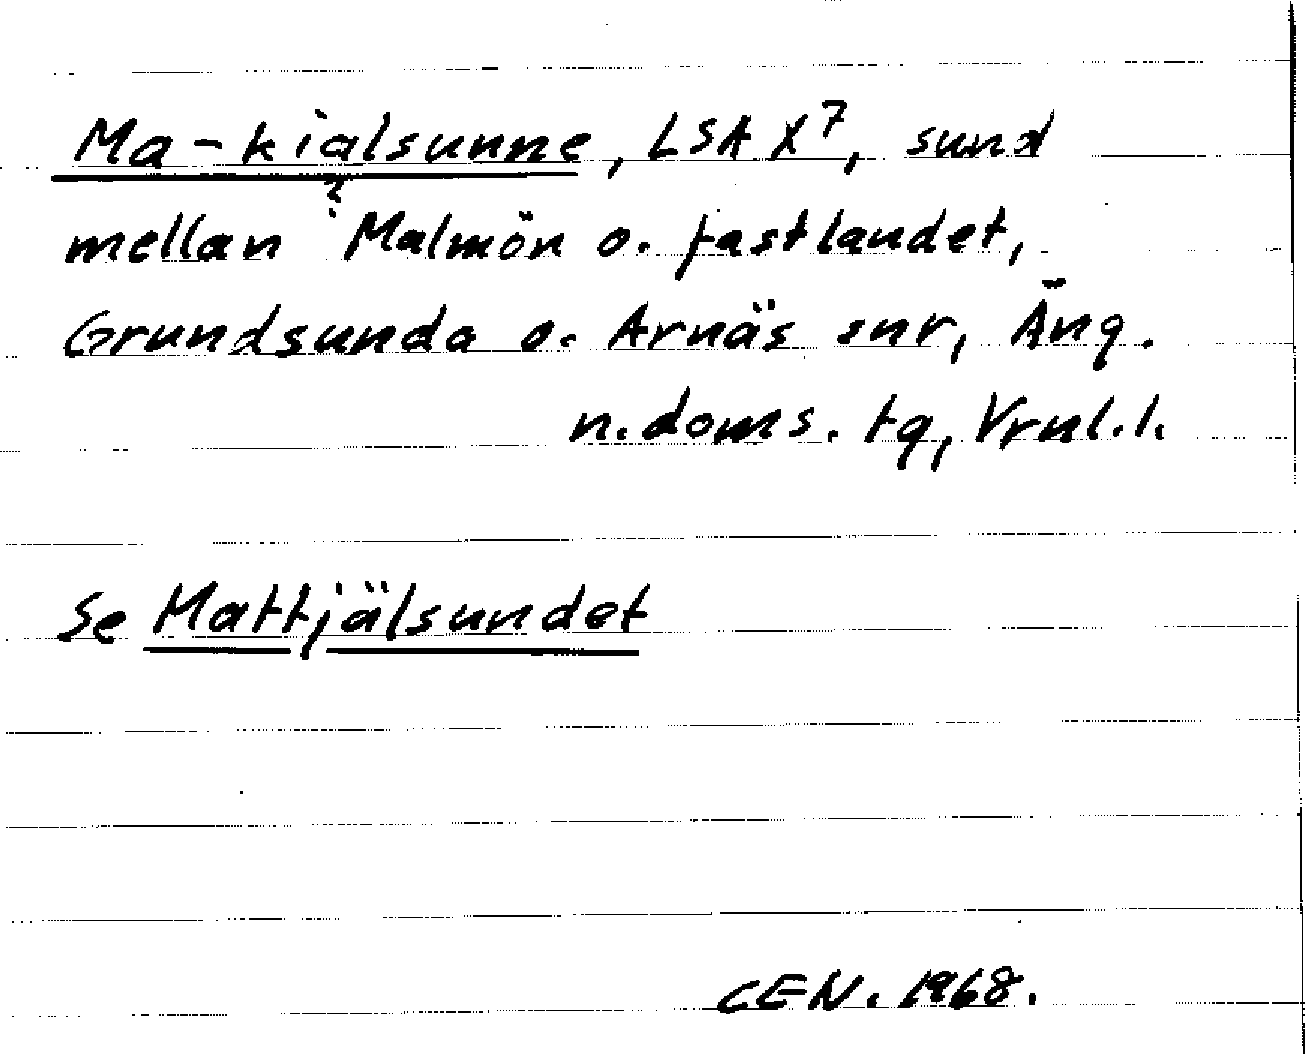 Ma-kialsunne, LSA X⁷, sund
?
mellan Malmön o. fastlandet,
Grundsunda o. Arnäs snr, Äng.
n. doms. tg, Vrnl. l.
Se Mattjälsundet
CEN. 1968.